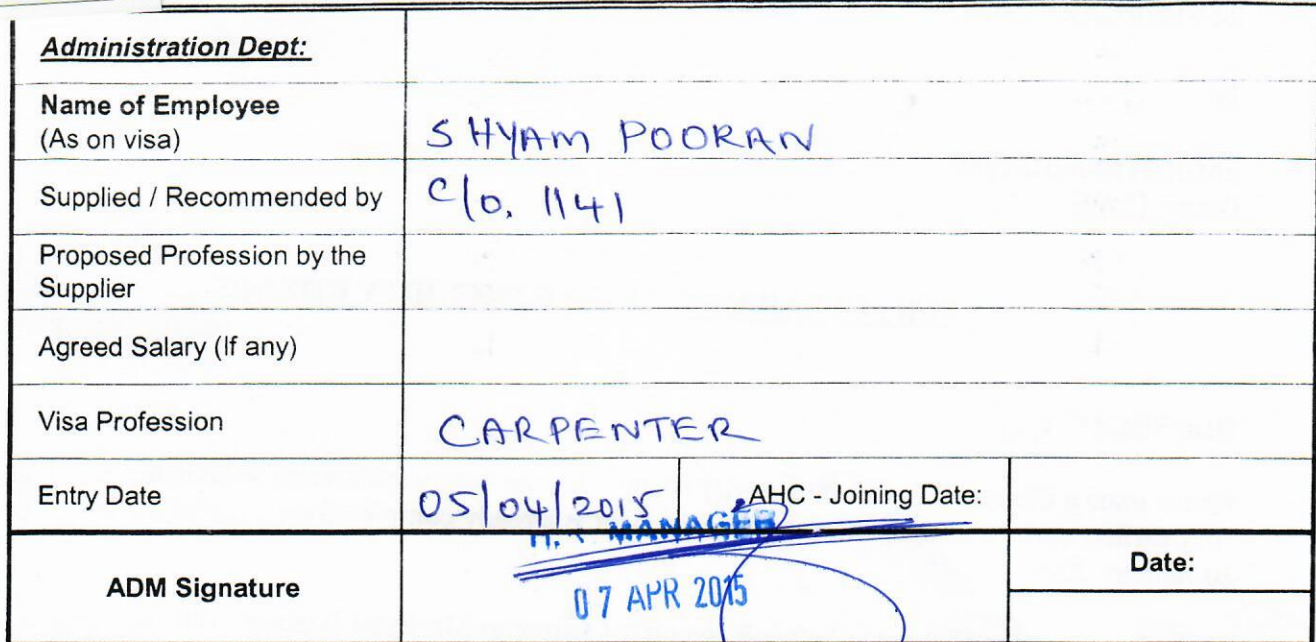 Administration Dept:
Name of Employee
(As on visa)
SHYAM POORAN
Supplied / Recommended by
C/o. 1141
Proposed Profession by the
Supplier
Agreed Salary (If any)
Visa Profession
CARPENTER
Entry Date
05/04/2015
AHC - Joining Date:
MANAGER
ADM Signature
07 APR 2015
Date: